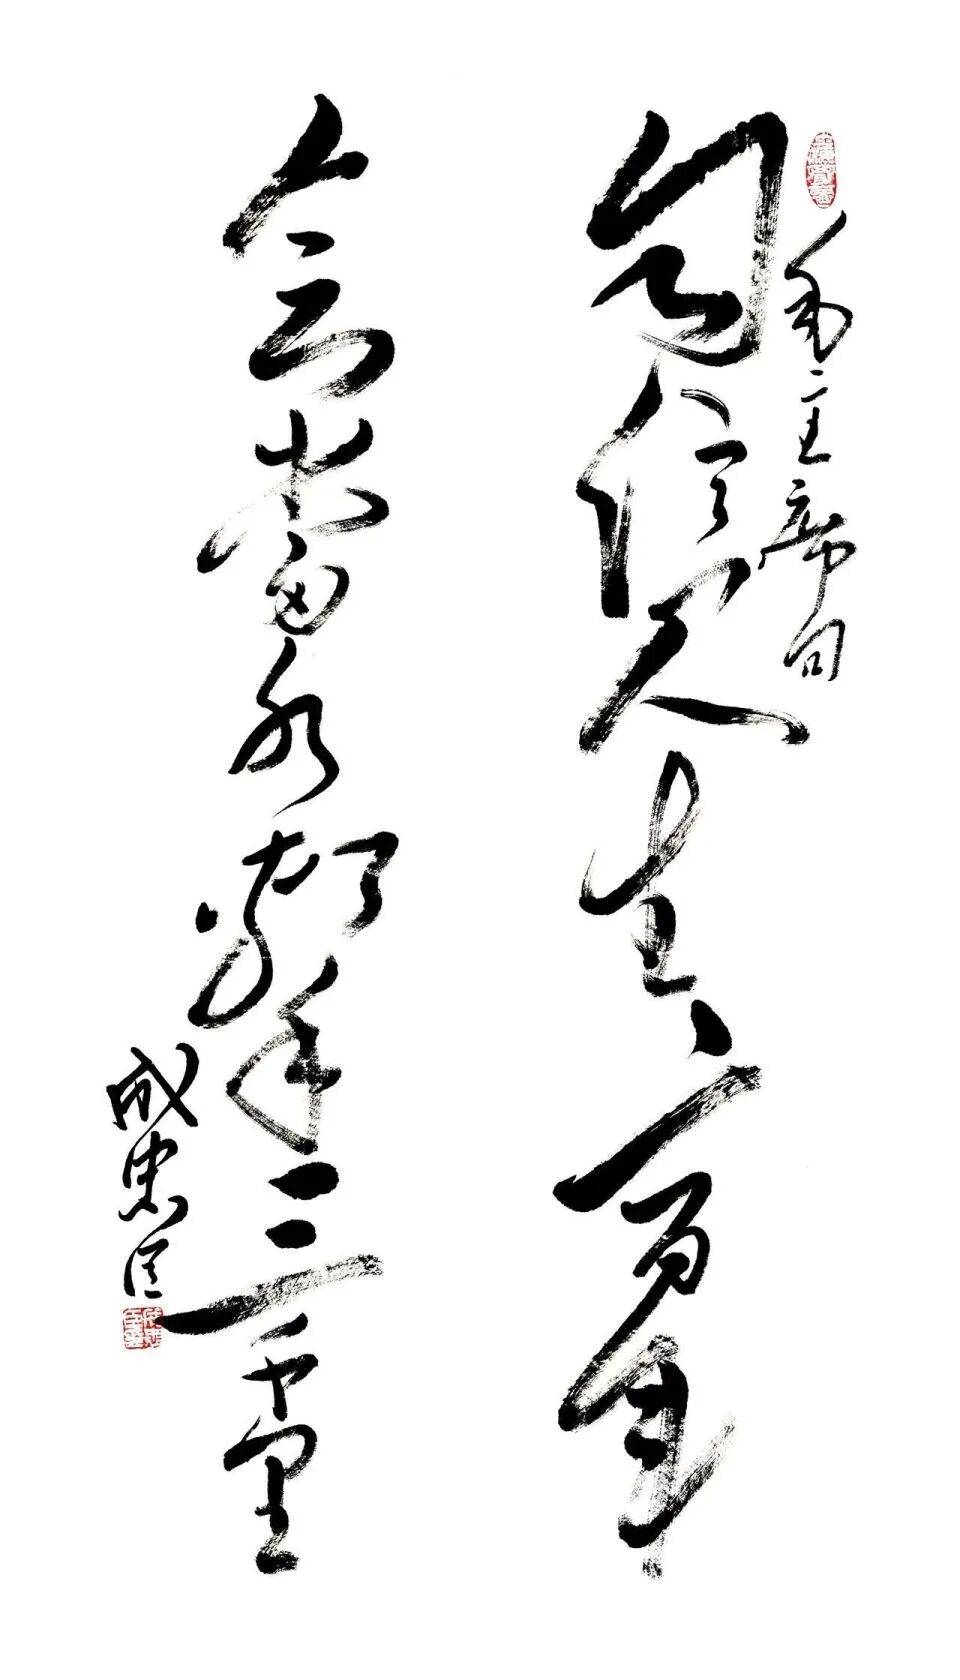 毛主席句
自信人生二百年
会當水擊三千里
成忠臣